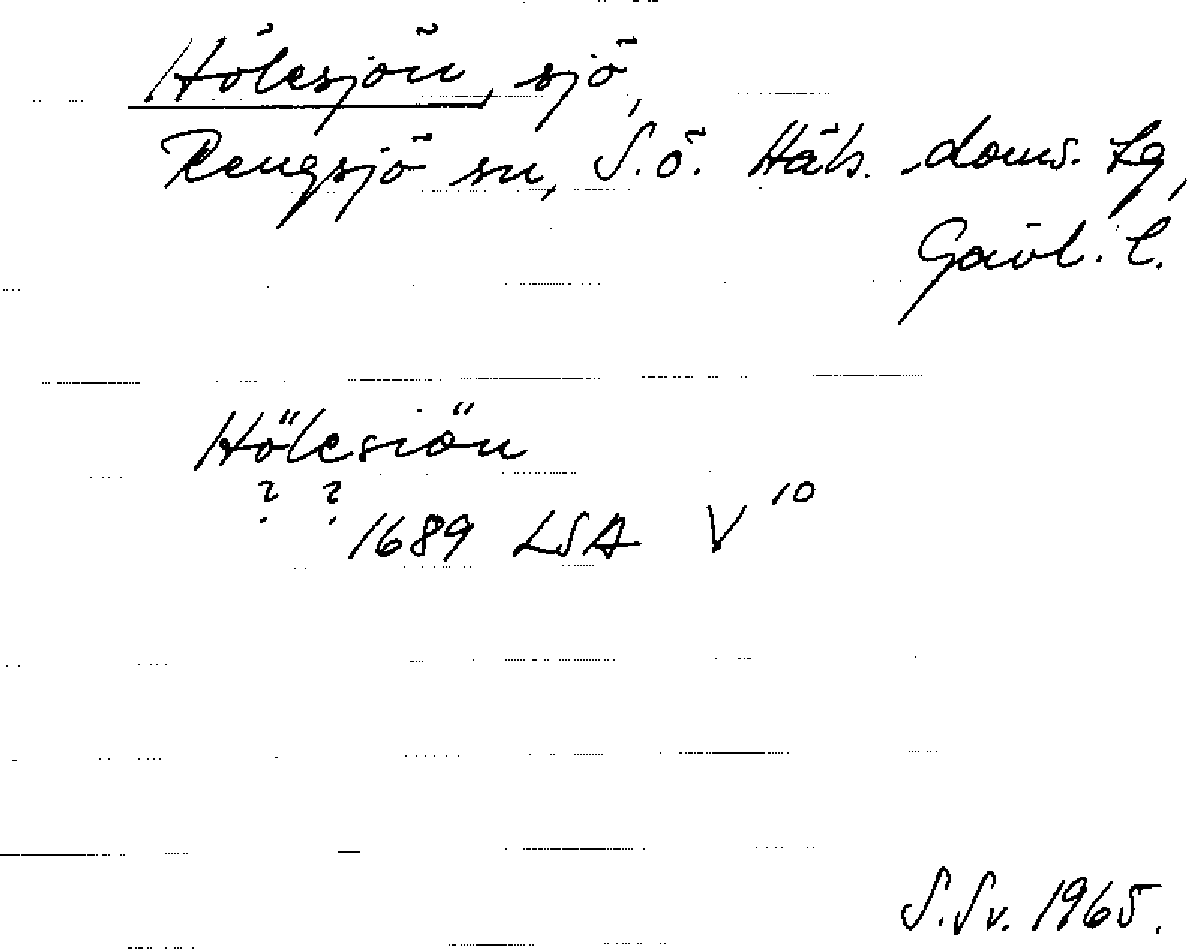 Hölesjön, sjö,
Rengsjö sn, S.ö. Häls. doms. Lg,
Gävl. l.
Hölesiön
? ?
1689 LSA V 10
S.Sv. 1965.